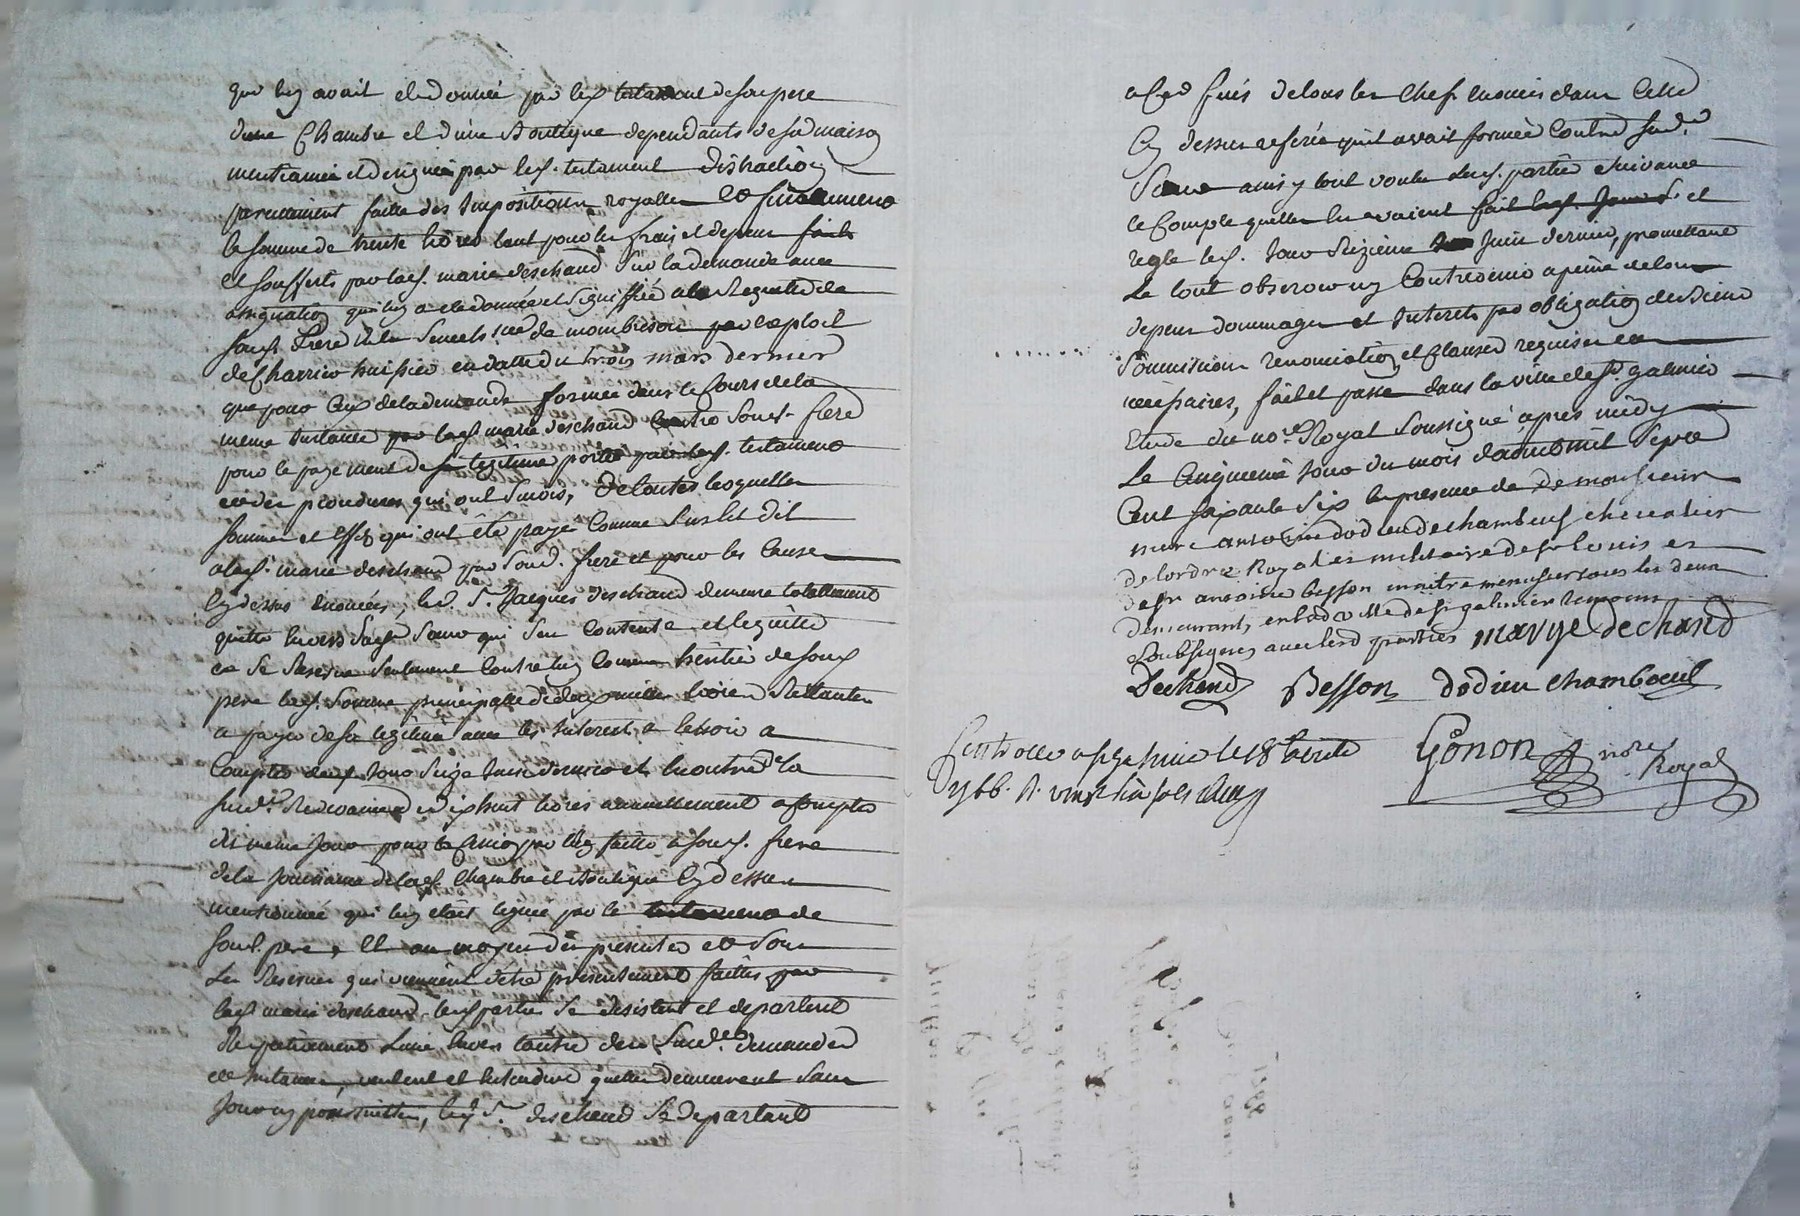 que luy avait eté donnée par led. testament de son pere
d'une Chambre et d'une Boutique dependants de sa maison
mentionnée et designée par led. testament distraction
parcillement faitte des Impositions royalles et finalement
la somme de trente livres tant pour les frais et depens faits
et soufferts par lad. marie deschand sur la demande avec
assignation qui luy a eté donnée et signiffiée a la Requette de
sond. frere en la Senech.ée de montbrison par exploit
de Charrier huissier en datte du trois mars dernier
que pour ceux de la demande formée dans le Cours de la
meme Instance par lad. marie deschand Contre sond. frere
pour le payement de sa legitime portée par led. testament
et des procedures qui ont suivis, de toutes lesquelles
sommes et effets qui ont été payé comme susest dit
a lad. marie deschand par sond. frere et pour les Causes
cy dessus enoncées, led. Sr. Jacques deschand demeure totallement
quitte envers sad. sœur qui s'en contente et le quitte
et se reserve seulement contre luy comme heritié de soud.
pere lad. somme principalle de deux mille livres Restantes
a payer de sa legitime avec les Interets a echoir a
compter dud. Jour seize Juin dernier et encontre la
susd. Redevance de dix huit livres annuellement a compter
du meme Jour pour le par elle faitte a soud. frere
de la Jouissance de lad. Chambre et Boutique Cy dessus
mentionnée qui luy etait leguée par le testament de
soud. pere, et au moyen des presentes et sous
les Reserves qui viennent d'etre presentement faittes par
lad. marie deschand, lesd. parties se desistent et departent
Respectivement l'une envers l'autre de leur susd. demandes
et Instances, veulent et entendent quelles demeurent sans
Jour ny poursuittes, led. Sr. deschand se departant
a ces fins de tous les Chefs enoncés dans Celle
Cy dessus referée qu'il avait formée Contre sad.
Sœur ainsy tout voulu par lesd. parties suivant
le Compte quelles en avaient fait led. Jour et
regle led. Jour seizieme Juin dernier, promettant
le tout observer ny Contrevenir a peine de tous
depens dommages et Interets par obligation de biens
Soumission renonciation et Clauses requises et
necessaires, fait et passé dans la ville de St. galmier
Etude du no.re Royal soussigné apres midy
Le Cinquieme Jour du mois d'aoust mil Sept
Cent soixante six en presence de de monsieur
marc antoine dodieu de chambeuf chevalier
de lordre Royal et militaire de st louis et
de sr antoine besson maitre menusier tous les deux
demeurants en lad. ville de st galmier temoins
soubsignes avec lesd parties marye dechand
Dechand Besson dodieu chambœuf
Controllé a st galmier le 18
1766. R.
Gonon nore
Royal